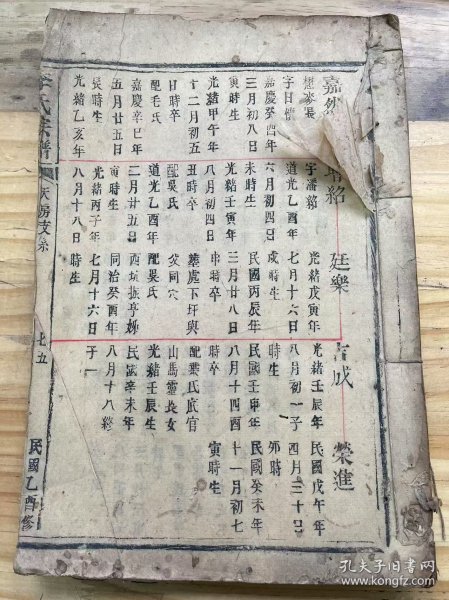 嘉
懋參長
字日懷
嘉慶癸酉年
三月初八日
寅時生
光緒甲午年
十二月初五
日時卒
配毛氏
嘉慶辛巳年
五月廿五日
長時生
光緒乙亥年
增銘
字潘銘
道光乙酉年
六月初四日
未時生
光緒壬寅年
八月初四日
丑時卒
配吳氏
道光乙酉年
二月廿五日
寅時生
光緒丙子年
八月十八日
廷樂
光緒戊寅年
七月十六日
戌時生
民國丙辰年
三月廿八日
申時卒
葬處下圩與
父同穴
配吳氏
同治癸酉年
七月十六日
時生
吉成
光緒壬辰年
八月初一子
時生
民國壬申年
八月十四酉
時卒
配葉氏底官
山馬靈長女
光緒壬辰生
民國辛未年
八月十八終
子一
榮進
民國戊午年
四月三十日
卯時
民國癸未年
十一月初七
寅時生
李氏宗譜
天房支系
七五
民國乙酉修
孔夫子旧书网